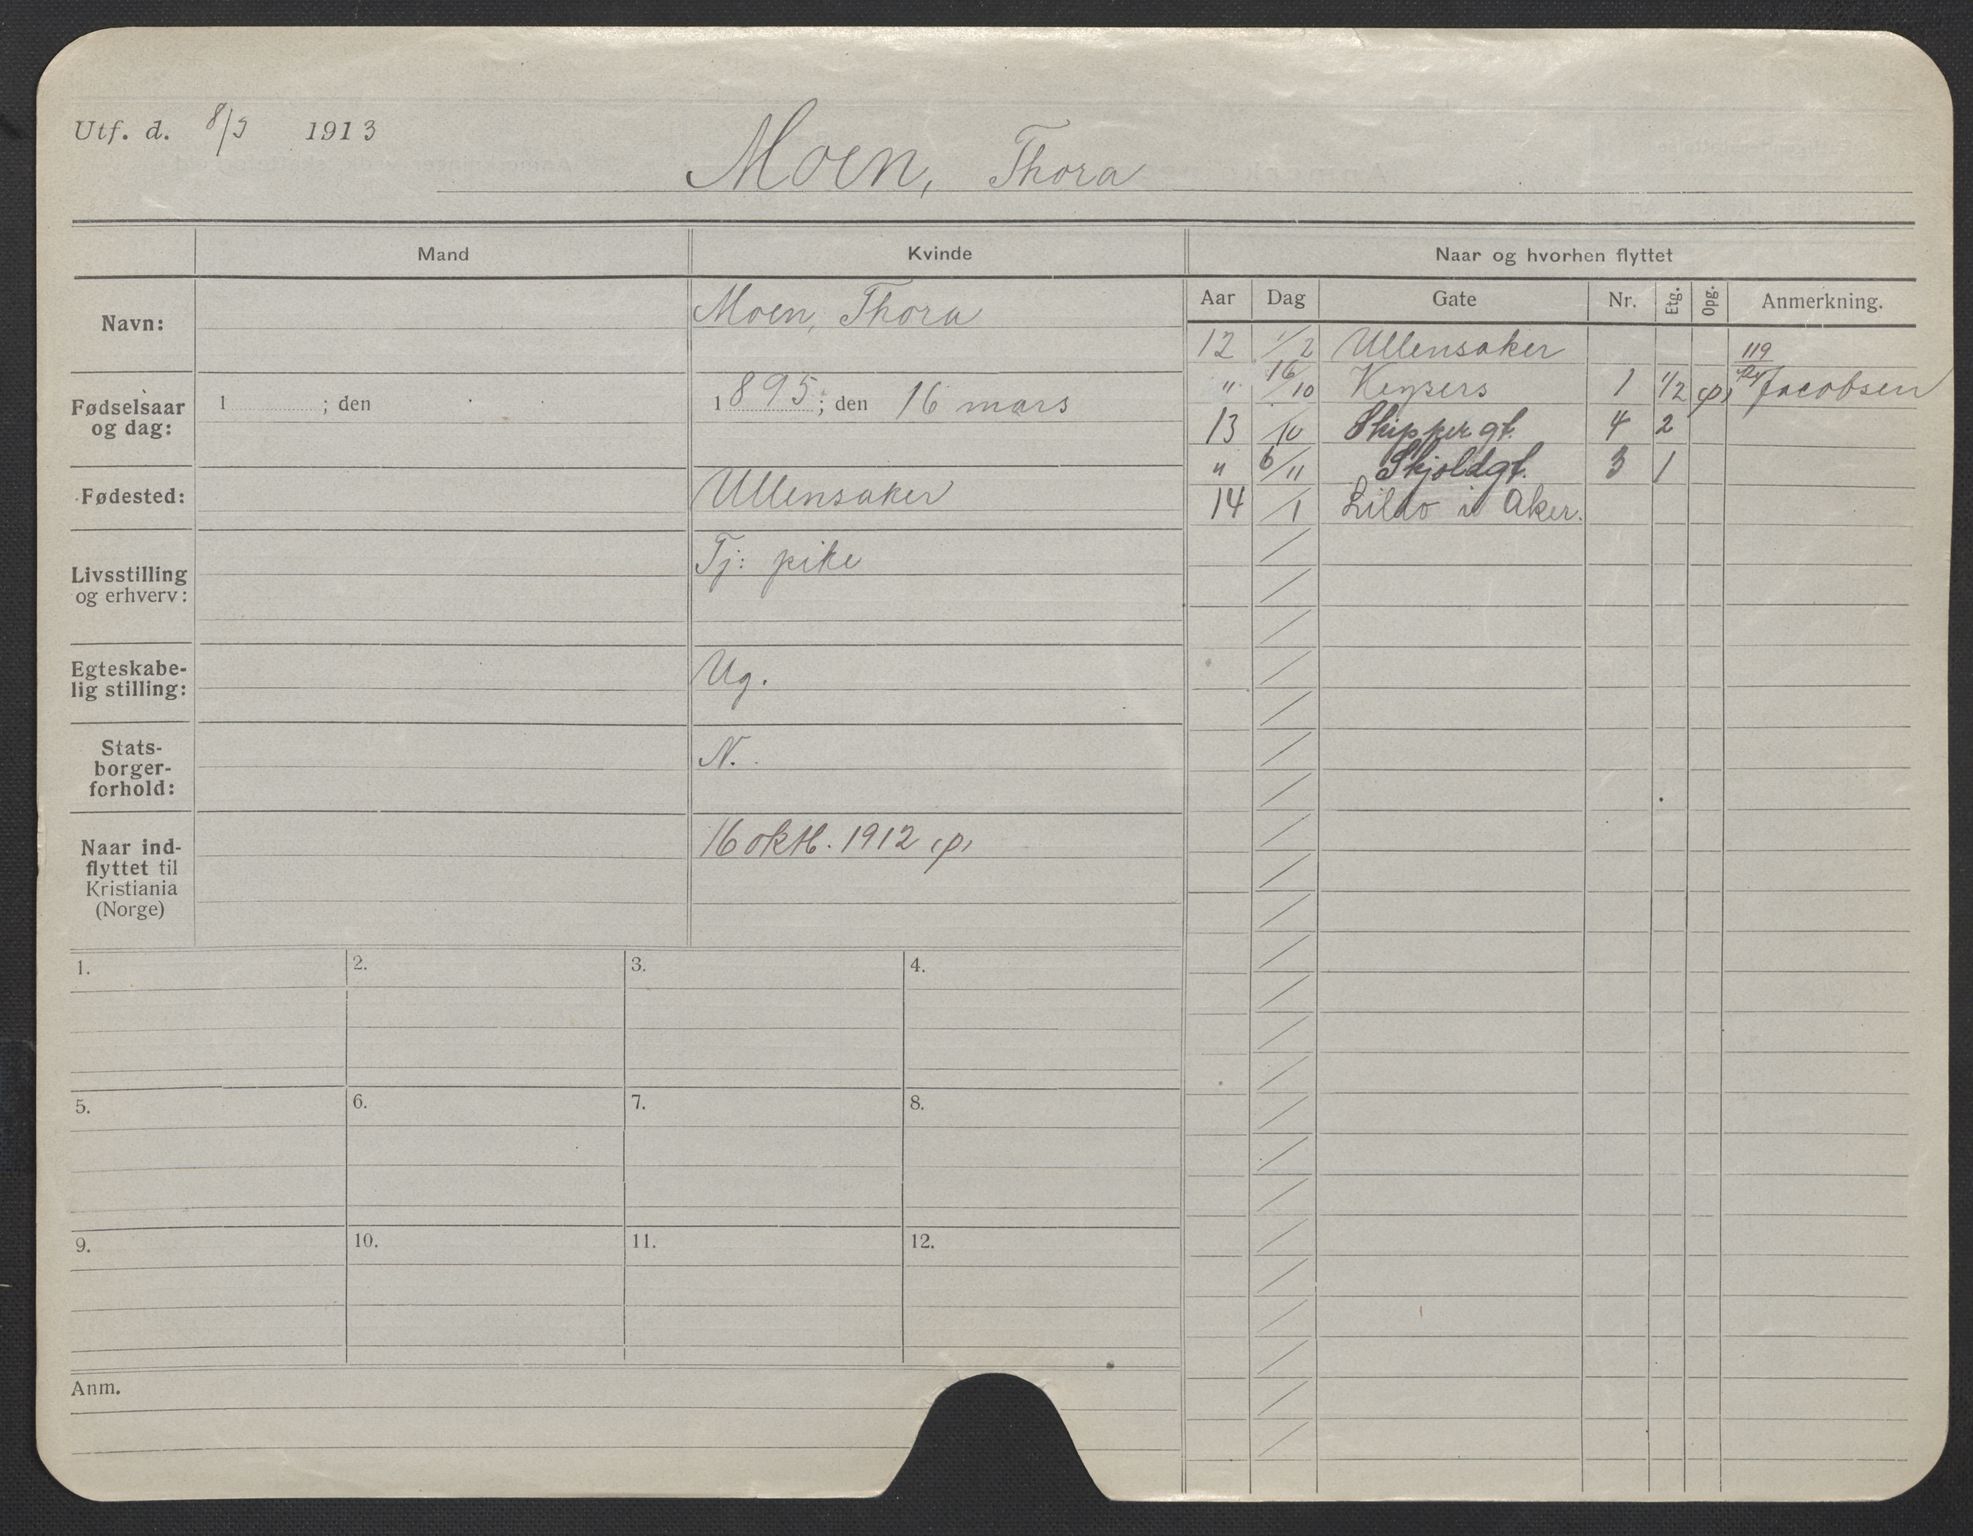 Utf. d. 8/5 1913
Moen, Thora
Mand
Kvinde
Naar og hvorhen flyttet
Navn:
Moen, Thora
Fødselsaar og dag:
1 ; den
1895; den 16 mars
Fødested:
Ullensaker
Livsstilling og erhverv:
Tj: pike
Egteskabe-
lig stilling:
Ug.
Stats-
borger-
forhold:
N.
Naar ind-
flyttet til
Kristiania
(Norge)
16 okt. 1912
Aar Dag Gate Nr. Etg. Opg. Anmerkning.
12 1/2 Ullensaker
119
" 16/10 Keysers 1 1/2 Jacobsen
13 /10 Skippergt. 4 2
" 6/11 Skjoldgt. 3 1
14 /1 i Aker.
1. 2. 3. 4.
5. 6. 7. 8.
9. 10. 11. 12.
Anm.